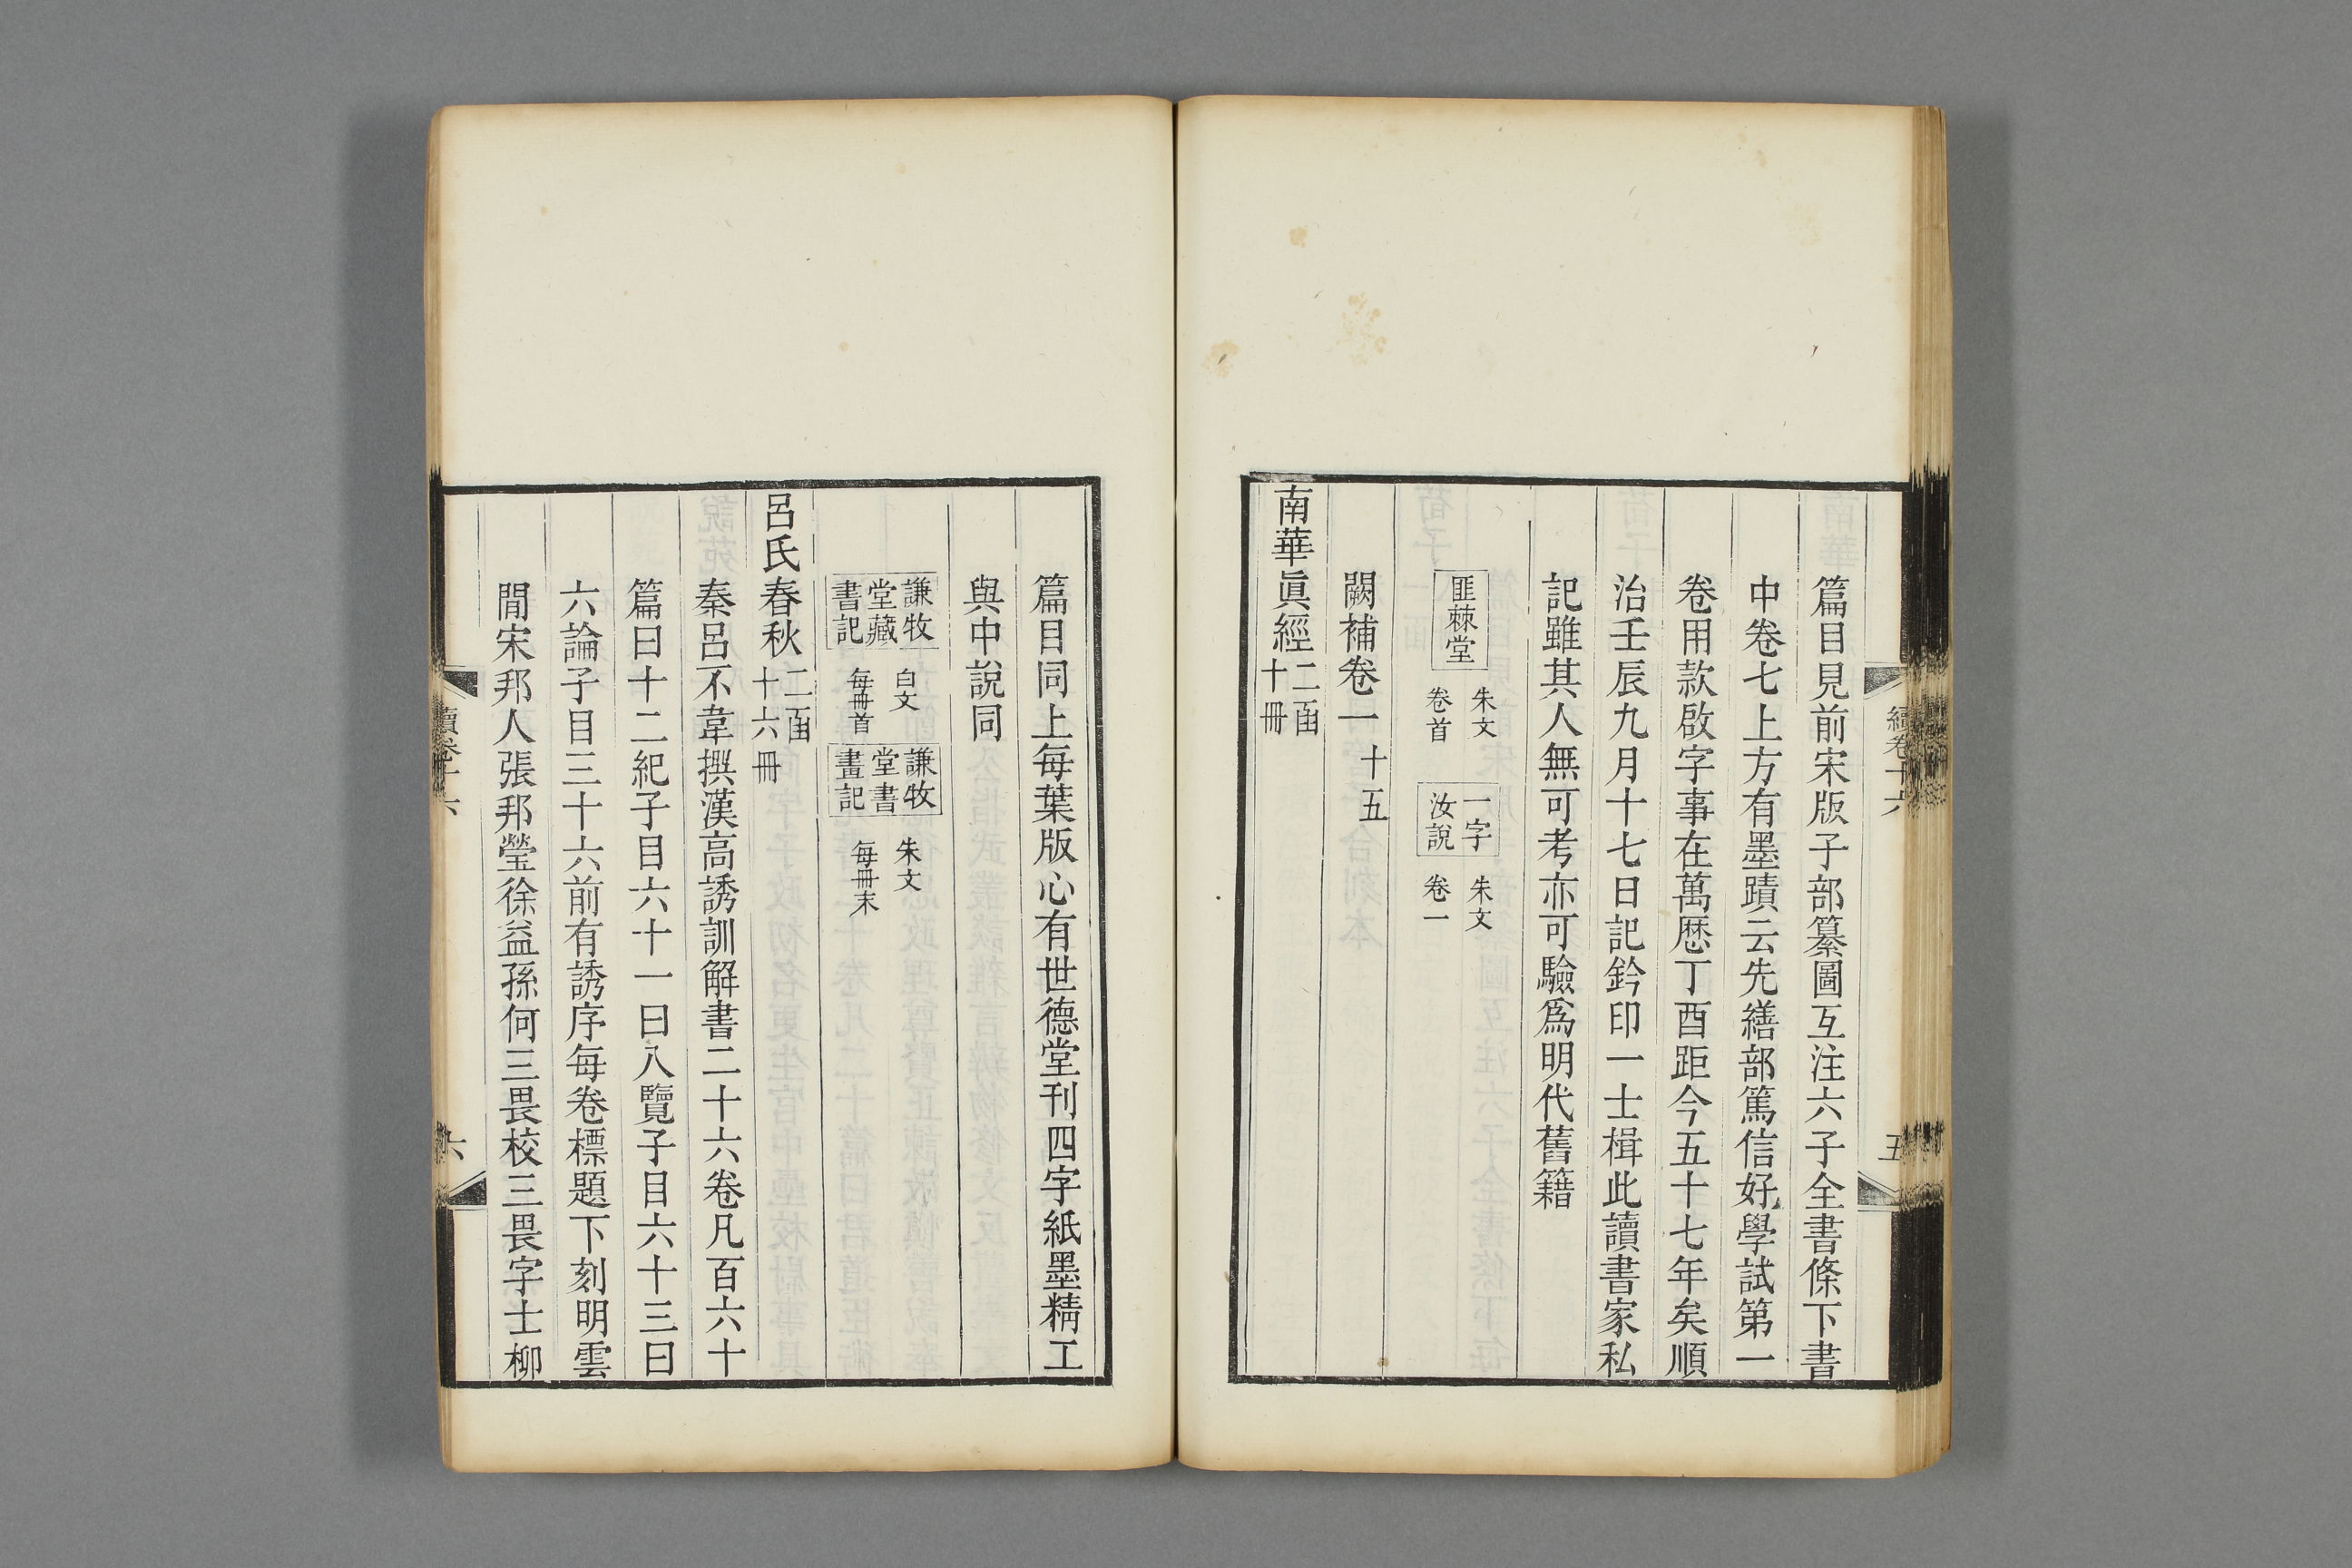 篇目見前宋版子部纂圖互注六子全書條下書
中卷七上方有墨蹟云先繕部篤信好學試第一
卷用款啟字事在萬歷丁酉距今五十七年矣順
治壬辰九月十七日記鈐印一士楫此讀書家私
記雖其人無可考亦可驗為明代舊籍
匪棘堂
朱文
卷首
一字
汝說
朱文
卷一
闕補卷一 十五
南華眞經
二函
十冊
續卷十六
五
篇目同上每葉版心有世德堂刊四字紙墨精工
與中說同
謙牧
堂藏
書記
白文
每冊首
謙牧
堂書
畫記
朱文
每冊末
呂氏春秋
二函
十六冊
秦呂不韋撰漢高誘訓解書二十六卷凡百六十
篇曰十二紀子目六十一曰八覽子目六十三曰
六論子目三十六前有誘序每卷標題下刻明雲
間宋邦人張邦瑩徐益孫何三畏校三畏字士柳
續卷十六
六